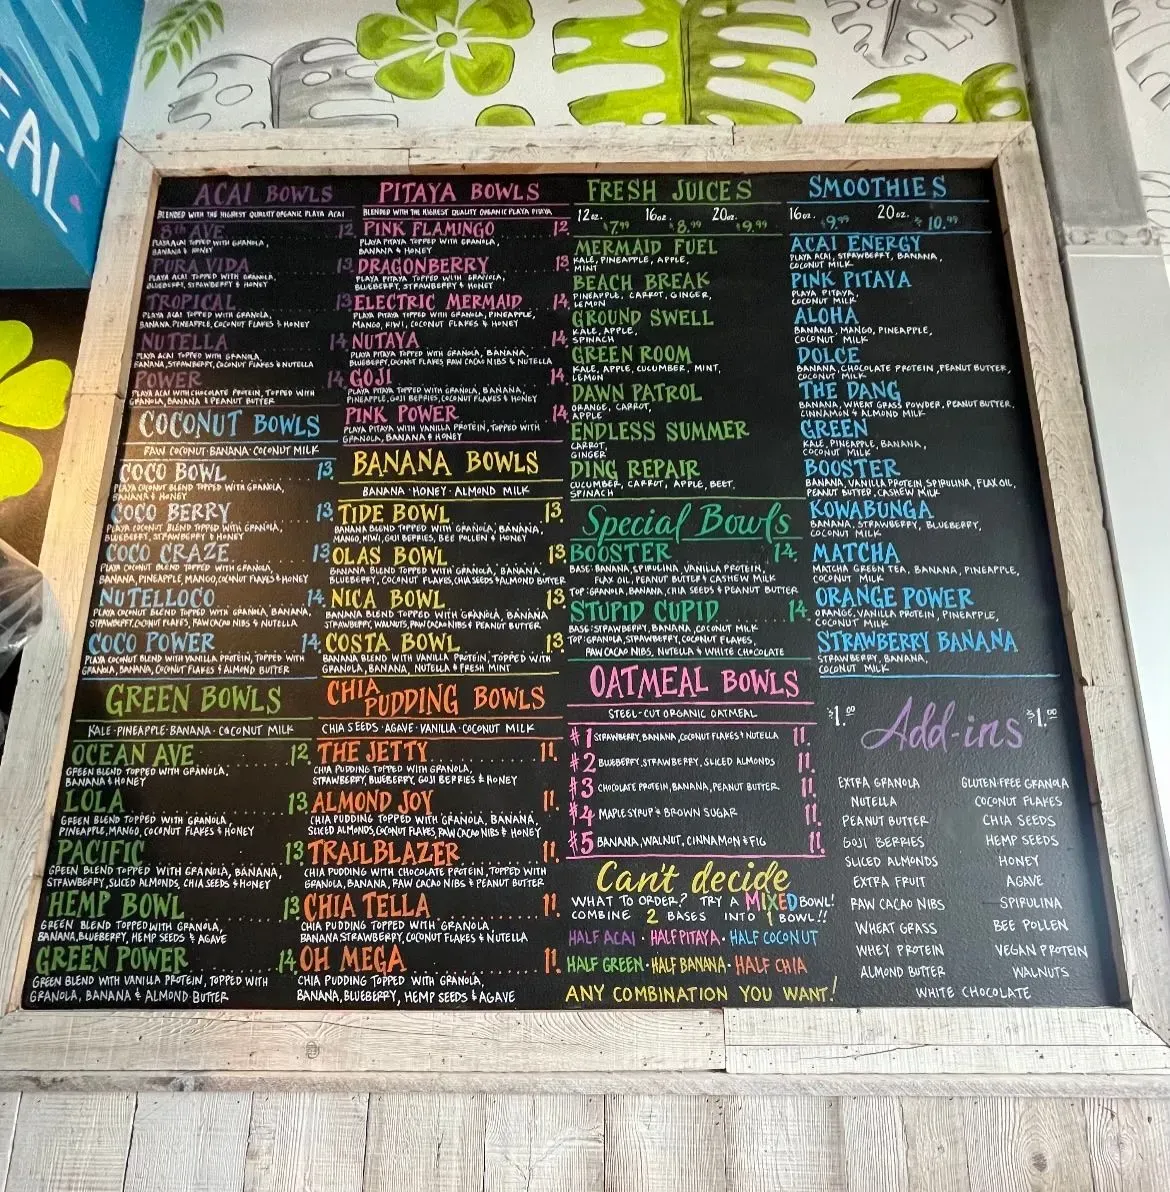 EAL
ACAI BOWLS
BLENDED WITH THE HIGHEST QUALITY ORGANIC PLAYA ACAI
8TH AVE 12
PLAYA ACAI TOPPED WITH GRANOLA,
BANANA & HONEY
PURA VIDA 13
PLAYA ACAI TOPPED WITH GRANOLA,
BLUEBERRY, STRAWBERRY & HONEY
TROPICAL 13
PLAYA ACAI TOPPED WITH GRANOLA,
BANANA, PINEAPPLE, COCONUT FLAKES & HONEY
NUTELLA 14
PLAYA ACAI TOPPED WITH GRANOLA,
BANANA, STRAWBERRY, COCONUT FLAKES & NUTELLA
POWER 14
PLAYA ACAI WITH CHOCOLATE PROTEIN, TOPPED WITH
GRANOLA, BANANA & PEANUT BUTTER
COCONUT BOWLS
RAW COCONUT · BANANA · COCONUT MILK
COCO BOWL 13
PLAYA COCONUT BLEND TOPPED WITH GRANOLA,
BANANA & HONEY
COCO BERRY 13
PLAYA COCONUT BLEND TOPPED WITH GRANOLA,
BLUEBERRY, STRAWBERRY & HONEY
COCO CRAZE 13
PLAYA COCONUT BLEND TOPPED WITH GRANOLA,
BANANA, PINEAPPLE, MANGO, COCONUT FLAKES & HONEY
NUTELLOCO 14
PLAYA COCONUT BLEND TOPPED WITH GRANOLA, BANANA,
STRAWBERRY, COCONUT FLAKES, RAW CACAO NIBS & NUTELLA
COCO POWER 14
PLAYA COCONUT BLEND WITH VANILLA PROTEIN, TOPPED WITH
GRANOLA, BANANA, COCONUT FLAKES & PEANUT BUTTER
GREEN BOWLS
KALE · PINEAPPLE · BANANA · COCONUT MILK
OCEAN AVE 12
GREEN BLEND TOPPED WITH GRANOLA,
BANANA & HONEY
LOLA 13
GREEN BLEND TOPPED WITH GRANOLA,
PINEAPPLE, MANGO, COCONUT FLAKES & HONEY
PACIFIC 13
GREEN BLEND TOPPED WITH GRANOLA, BANANA,
STRAWBERRY, SLICED ALMONDS, CHIA SEEDS & HONEY
HEMP BOWL 13
GREEN BLEND TOPPED WITH GRANOLA,
BANANA, BLUEBERRY, HEMP SEEDS & AGAVE
GREEN POWER 14
GREEN BLEND WITH VANILLA PROTEIN, TOPPED WITH
GRANOLA, BANANA & ALMOND BUTTER
PITAYA BOWLS
BLENDED WITH THE HIGHEST QUALITY ORGANIC PLAYA PITAYA
PINK FLAMINGO 12
PLAYA PITAYA TOPPED WITH GRANOLA,
BANANA & HONEY
DRAGONBERRY 13
PLAYA PITAYA TOPPED WITH GRANOLA,
BLUEBERRY, STRAWBERRY & HONEY
ELECTRIC MERMAID 14
PLAYA PITAYA TOPPED WITH GRANOLA, PINEAPPLE,
MANGO, KIWI, COCONUT FLAKES & HONEY
NUTAYA 14
PLAYA PITAYA TOPPED WITH GRANOLA, BANANA,
BLUEBERRY, COCONUT FLAKES, RAW CACAO NIBS & NUTELLA
GOJI 14
PLAYA PITAYA TOPPED WITH GRANOLA, BANANA,
PINEAPPLE, GOJI BERRIES, COCONUT FLAKES & HONEY
PINK POWER 14
PLAYA PITAYA WITH VANILLA PROTEIN, TOPPED WITH
GRANOLA, BANANA & HONEY
BANANA BOWLS
BANANA · HONEY · ALMOND MILK
TIDE BOWL 13
BANANA BLEND TOPPED WITH GRANOLA, BANANA,
MANGO, KIWI, GOJI BERRIES, BEE POLLEN & HONEY
OLAS BOWL 13
BANANA BLEND TOPPED WITH GRANOLA, BANANA,
BLUEBERRY, COCONUT FLAKES, CHIA SEEDS & ALMOND BUTTER
NICA BOWL 13
BANANA BLEND TOPPED WITH GRANOLA, BANANA
STRAWBERRY, WALNUTS, RAW CACAO NIBS & PEANUT BUTTER
COSTA BOWL 13
BANANA BLEND WITH VANILLA PROTEIN, TOPPED WITH
GRANOLA, BANANA, NUTELLA & FRESH MINT
CHIA PUDDING BOWLS
CHIA SEEDS · AGAVE · VANILLA · COCONUT MILK
THE JETTY 11
CHIA PUDDING TOPPED WITH GRANOLA,
STRAWBERRY, BLUEBERRY, GOJI BERRIES & HONEY
ALMOND JOY 11
CHIA PUDDING TOPPED WITH GRANOLA, BANANA,
SLICED ALMONDS, COCONUT FLAKES, RAW CACAO NIBS & HONEY
TRAILBLAZER 11
CHIA PUDDING WITH CHOCOLATE PROTEIN, TOPPED WITH
GRANOLA, BANANA, RAW CACAO NIBS & PEANUT BUTTER
CHIA TELLA 11
CHIA PUDDING TOPPED WITH GRANOLA,
BANANA STRAWBERRY, COCONUT FLAKES & NUTELLA
OH MEGA 11
CHIA PUDDING TOPPED WITH GRANOLA,
BANANA, BLUEBERRY, HEMP SEEDS & AGAVE
FRESH JUICES
12oz. $7.99 16oz. $8.99 20oz. $9.99
MERMAID FUEL
KALE, PINEAPPLE, APPLE,
MINT
BEACH BREAK
PINEAPPLE, CARROT, GINGER,
LEMON
GROUND SWELL
KALE, APPLE,
SPINACH
GREEN ROOM
KALE, APPLE, CUCUMBER, MINT,
LEMON
DAWN PATROL
ORANGE, CARROT,
APPLE
ENDLESS SUMMER
CARROT,
GINGER
DING REPAIR
CUCUMBER, CARROT, APPLE, BEET,
SPINACH
Special Bowls
BOOSTER 14
BASE: BANANA, SPIRULINA, VANILLA PROTEIN,
FLAX OIL, PEANUT BUTTER & CASHEW MILK
TOP: GRANOLA, BANANA, CHIA SEEDS & PEANUT BUTTER
STUPID CUPID 14
BASE: STRAWBERRY, BANANA, COCONUT MILK
TOP: GRANOLA, STRAWBERRY, COCONUT FLAKES,
RAW CACAO NIBS, NUTELLA & WHITE CHOCOLATE
OATMEAL BOWLS
STEEL-CUT ORGANIC OATMEAL
#1 STRAWBERRY, BANANA, COCONUT FLAKES & NUTELLA 11.
#2 BLUEBERRY, STRAWBERRY, SLICED ALMONDS 11.
#3 CHOCOLATE PROTEIN, BANANA, PEANUT BUTTER 11.
#4 MAPLE SYRUP & BROWN SUGAR 11.
#5 BANANA, WALNUT, CINNAMON & FIG 11.
Can't decide
WHAT TO ORDER? TRY A MIXED BOWL!
COMBINE 2 BASES INTO 1 BOWL!!
HALF ACAI · HALF PITAYA · HALF COCONUT
HALF GREEN · HALF BANANA · HALF CHIA
ANY COMBINATION YOU WANT!
SMOOTHIES
16oz. $9.99 20oz. $10.99
ACAI ENERGY
PLAYA ACAI, STRAWBERRY, BANANA,
COCONUT MILK
PINK PITAYA
PLAYA PITAYA,
COCONUT MILK
ALOHA
BANANA, MANGO, PINEAPPLE,
COCONUT MILK
DOLCE
BANANA, CHOCOLATE PROTEIN, PEANUT BUTTER,
COCONUT MILK
THE DANG
BANANA, WHEAT GRASS POWDER, PEANUT BUTTER,
CINNAMON & ALMOND MILK
GREEN
KALE, PINEAPPLE, BANANA,
COCONUT MILK
BOOSTER
BANANA, VANILLA PROTEIN, SPIRULINA, FLAX OIL,
PEANUT BUTTER, CASHEW MILK
KOWABUNGA
BANANA, STRAWBERRY, BLUEBERRY,
COCONUT MILK
MATCHA
MATCHA GREEN TEA, BANANA, PINEAPPLE,
COCONUT MILK
ORANGE POWER
ORANGE, VANILLA PROTEIN, PINEAPPLE,
COCONUT MILK
STRAWBERRY BANANA
STRAWBERRY, BANANA,
COCONUT MILK
$1.00 Add-ins $1.00
EXTRA GRANOLA
NUTELLA
PEANUT BUTTER
GOJI BERRIES
SLICED ALMONDS
EXTRA FRUIT
RAW CACAO NIBS
WHEAT GRASS
WHEY PROTEIN
ALMOND BUTTER
GLUTEN FREE GRANOLA
COCONUT FLAKES
CHIA SEEDS
HEMP SEEDS
HONEY
AGAVE
SPIRULINA
BEE POLLEN
VEGAN PROTEIN
WALNUTS
WHITE CHOCOLATE